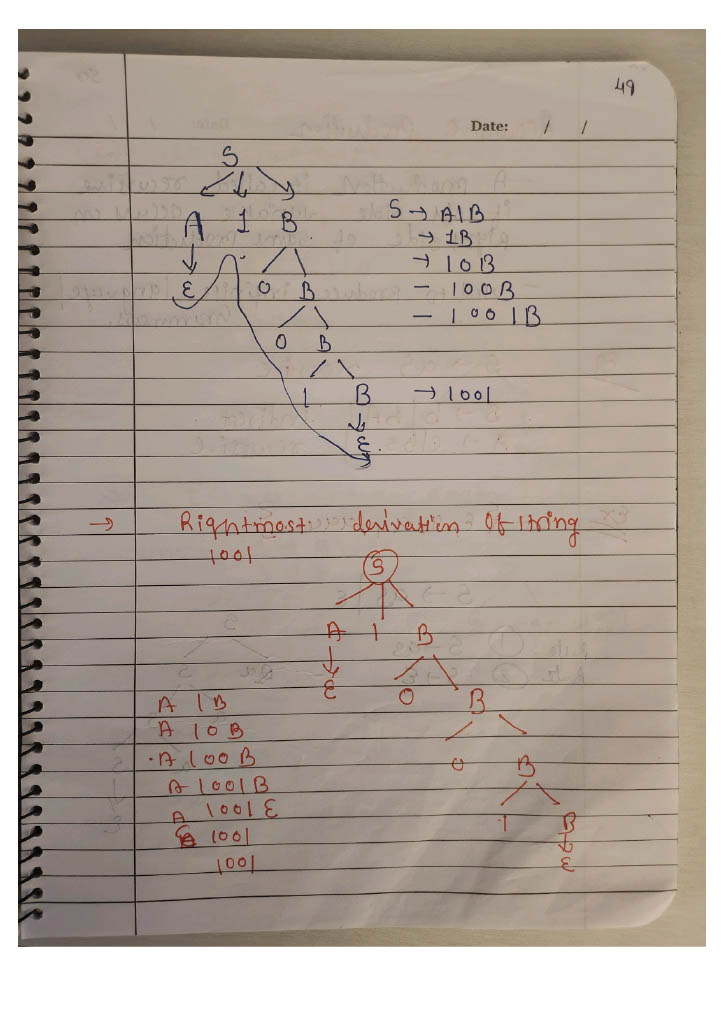 49
Date: / /
S
A 1 B
ε 0 B
0 B
1 B
ε
S → A1B
→ 1B
→ 10B
- 100B
- 1001B
→ 1001
→ Rightmost derivation Of string
1001
S
A 1 B
ε 0 B
0 B
1 B
ε
A 1B
A 10B
A 100B
A 1001B
A 1001 ε
ε 1001
1001